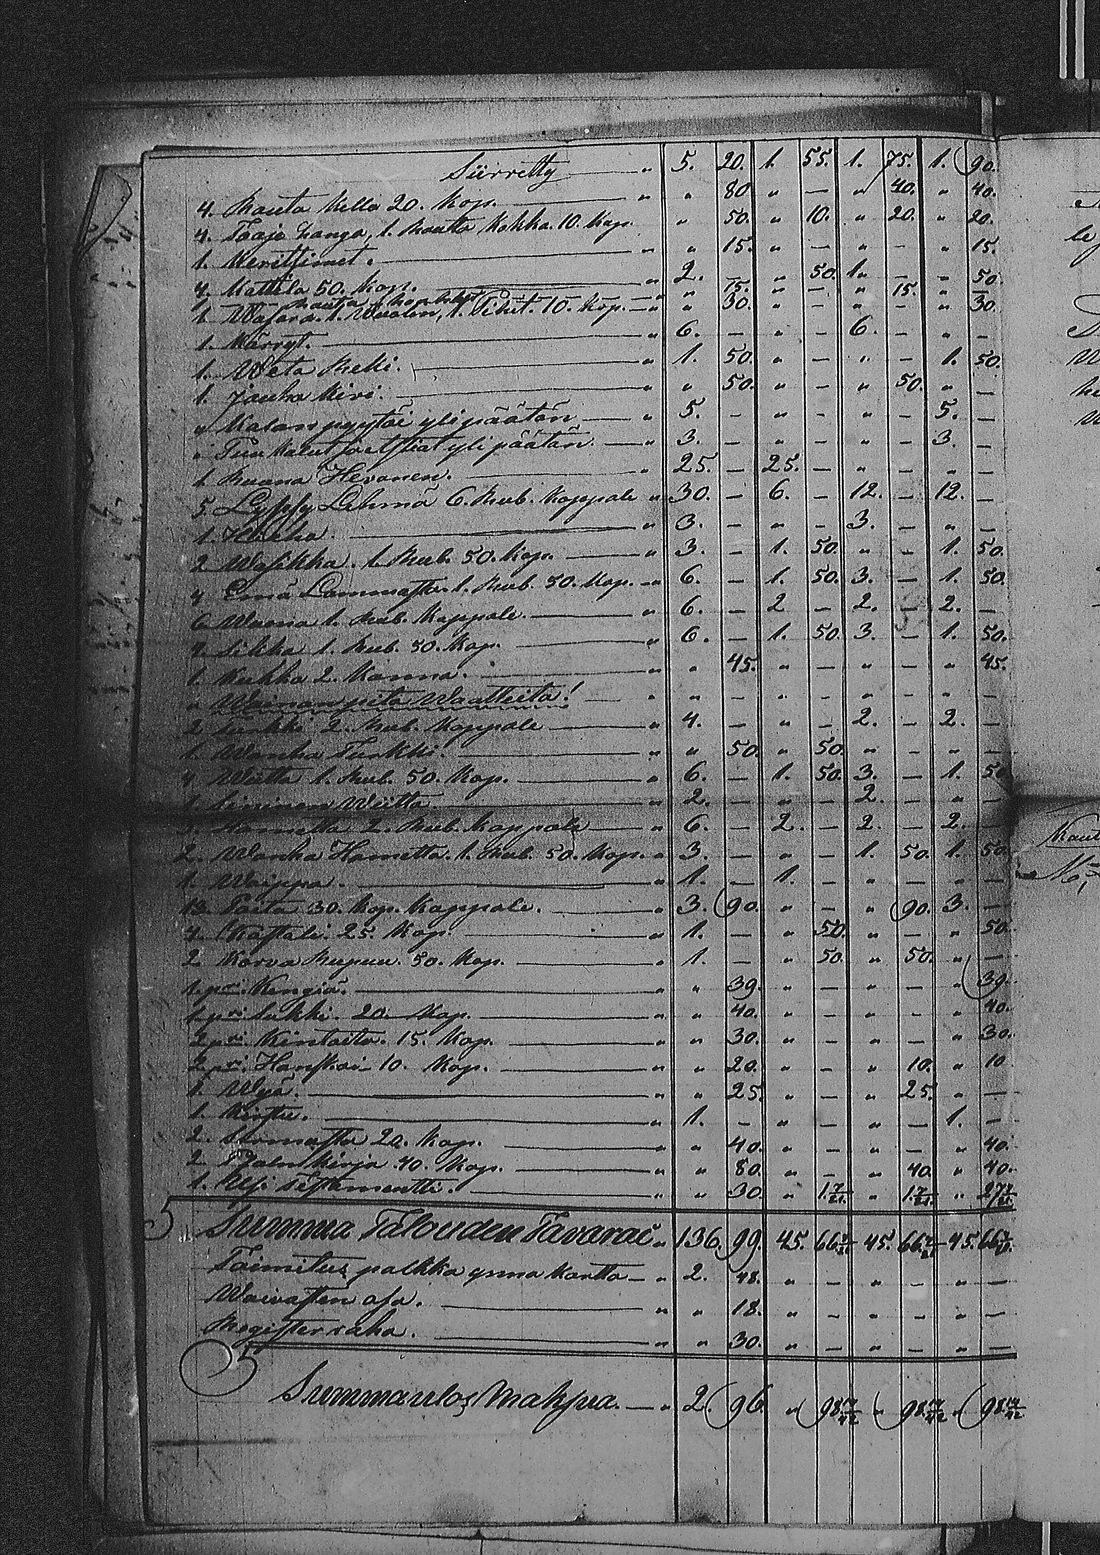 Siirretty " 5. 20. 1. 55. 1. 75. 1. 90.
4. Rauta Kello 20. Kop. " " 80 " — " 40. " 40.
4. Taaja Kanga, 1. Rautta Kokka 10. Kop. " 50. " 10. " 20. " 20.
1. Keritsimet. " " 15. " — " — " 15.
4. Kattila 50. Kop. " 2. — " 50. 1. — " 50.
Rauta " " 75. " — " 15. "
1. Wasara. 1. 1. Pihit. 10. Kop. " " 30. " — " — " 30.
1. Kärryt. " 6. — " — 6. — " —
1. Weta Reki. " 1. 50. " — " — 1. 50.
1. Jauho Kivi. " " 50. " — " 50. " —
" Kalan pyytöi ylipäätän " 5. — " — " — 5. —
" Puu Kalut ja astjiat ylipäätän " 3. — " — " — 3. —
1. Ruana Hevonen. " 25. — 25. — " — " —
5. Lypsy Lehmä 6. Rub. Kappale " 30. — 6. — 12. — 12. —
1. Hieho " 3. — " — 3. — " —
2 Wasikka. 1. Rub. 50. Kop. " 3. — 1. 50. " — 1. 50.
4 Emä Lammasta. 1. Rub. 50. Kop. " 6. — 1. 50. 3. — 1. 50.
6 Wuona 1. Rub. Kappale. " 6. — 2 — 2. — 2. —
4. Sikka 1. Rub. 50. Kop. " 6. — 1. 50. 3. — 1. 50.
1. Kukko 2. Kanna. " " 45. " — " — " 45.
" Wainan pito Waatteita! " " — " — " — " —
2. Turkki 2. Rub. Kappale " 4. — " — 2. — 2. —
1. Wanha Turkki. " " 50. " 50. " — " —
4 Wiitta 1. Rub. 50. Kop. " 6. — 1. 50. 3. — 1. 50
1. Sininen Wiitta " 2. — " — 2. — " —
3. Hametta 2. Rub. Kappale " 6. — 2. — 2. — 2. —
2. Wanha Hametta. 1. Rub. 50. Kop. " 3. — " — 1. 50. 1. 50
1. Waippa. " 1. — 1. — " — " —
13. Paita 30. Kop. Kappale. " 3. 90. " — " 90. 3. —
4. Kaftali. 25. Kop. " 1. — " 50. " — " 50.
2. Korva Rupuu. 50. Kop. " 1. — " 50. " 50. " —
1. pr: Kengiä. " " 39. " — " — " 39.
1. pr: Sukki. 20. Kop. " " 40. " — " — " 40.
2. pr: Kintaita. 15. Kop. " " 30. " — " — " 30.
2. pr: Hanskai 10. Kop. " " 20. " — " 10. " 10
1. Wyö. " " 25. " — " 25. " —
1. Kirstu. " 1. — " — " — 1. —
2. 20. Kop. " " 40. " — " — " 40.
2. Psalm Kirja 40. Kop. " " 80. " — " 40. " 40.
1. Usi Testamentti. " " 30.
Summa Talouden Tavarat " 136. 99. 45. 66 45. 66 45. 66
Toimitus palkka ynnä Kartta " 2. 48. " — " — " —
Waivasten osa. " " 18. " — " — " —
Regisster raha. " " 30. " — " — " —
Summa ulos Maksua. " 2. 96. " 98 " 98 " 98